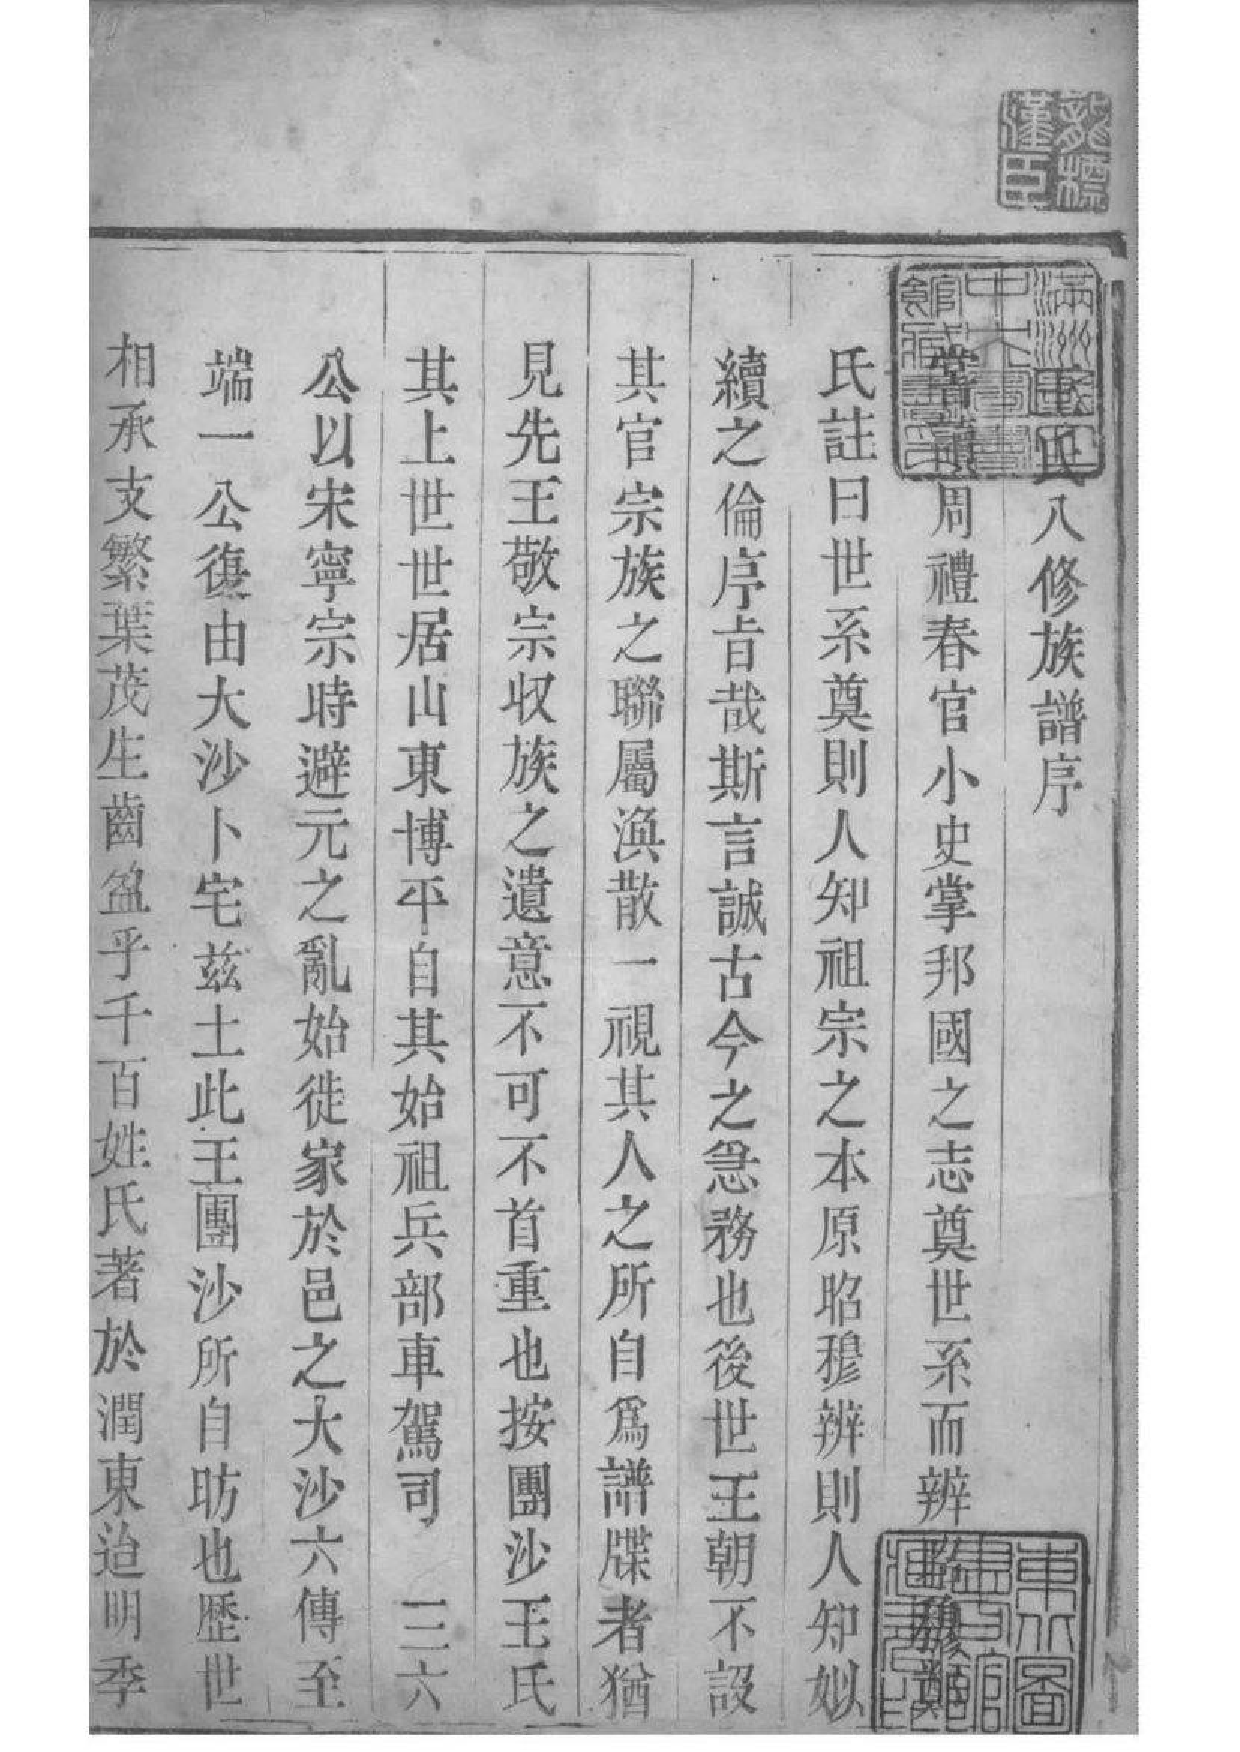 王氏八修族譜序
嘗讀周禮春官小史掌邦國之志奠世系而辨昭穆鄭
氏註曰世系奠則人知祖宗之本原昭穆辨則人知姒
續之倫序旨哉斯言誠古今之急務也後世王朝不設
其官宗族之聯屬渙散一視其人之所自爲譜牒者猶
見先王敬宗収族之遺意不可不首重也按團沙王氏
其上世世居山東博平自其始祖兵部車駕司 三六
公以宋寧宗時避元之亂始徙家於邑之大沙六傳至
端一公復由大沙卜宅茲土此王團沙所自昉也歷世
相承支繁葉茂生齒盈乎千百姓氏著於潤東迨明季